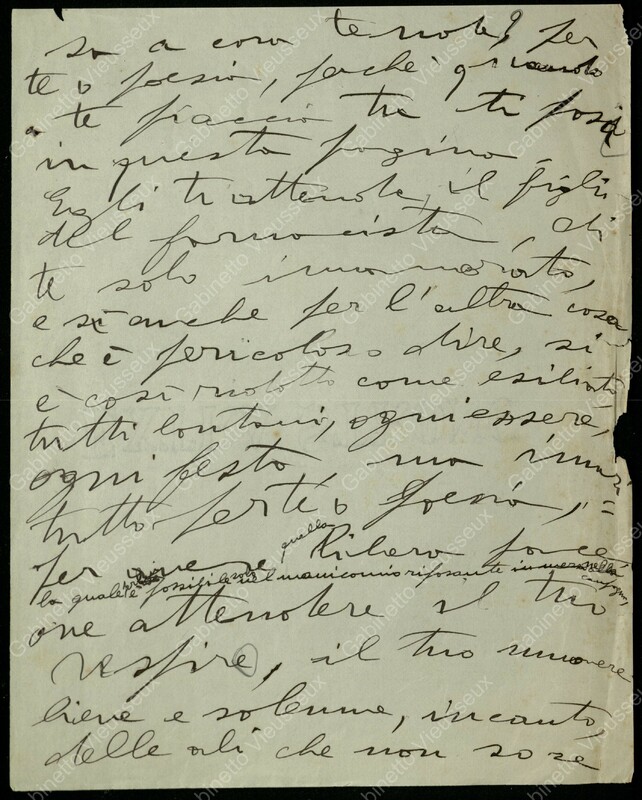 te o poesia, perchè quando
te faccio tu ti posa
in questa pagina
Egli ti attende, il figlio
del farmacista, di
te solo innamorato,
e si anche per l'altra cosa
che è pericoloso dire, si
è così ridotto come esiliato,
tutti lontani, ogni essere,
ogni festa, ma
tutto per te o Poesia,
per quella libera pace
la quale è possibile nel manicomio riposante in mezzo alla campagna,
attendere il tuo
respiro, il tuo muovere
lieve e solenne, incanto,
delle ali che non so se
Gabinetto Vieusseux